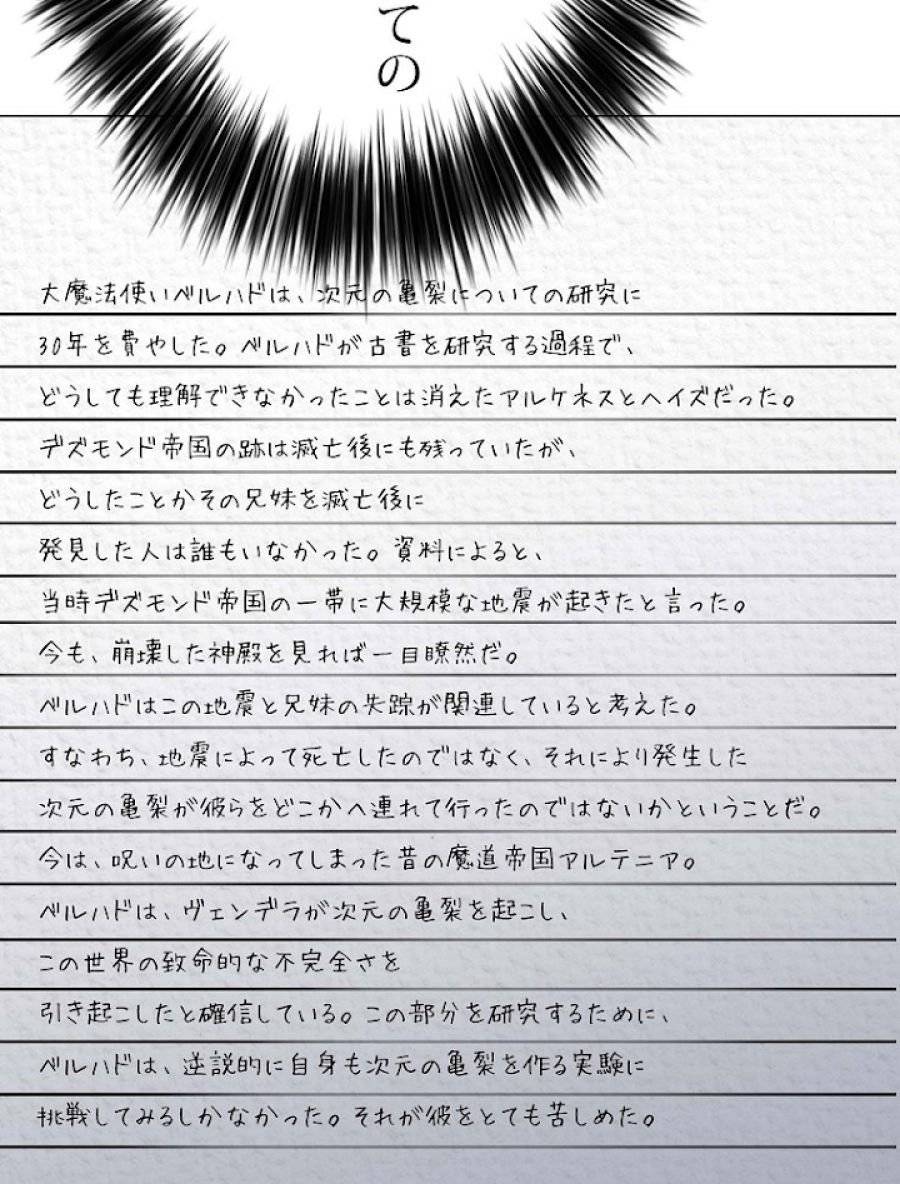 ての
大魔法使いベルハドは、次元の亀裂についての研究に
30年を費やした。ベルハドが古書を研究する過程で、
どうしても理解できなかったことは消えたアルケネスとヘイズだった。
デズモンド帝国の跡は滅亡後にも残っていたが、
どうしたことかその兄妹を滅亡後に
発見した人は誰もいなかった。資料によると、
当時デズモンド帝国の一帯に大規模な地震が起きたと言った。
今も、崩壊した神殿を見れば一目瞭然だ。
ベルハドはこの地震と兄妹の失踪が関連していると考えた。
すなわち、地震によって死亡したのではなく、それにより発生した
次元の亀裂が彼らをどこかへ連れて行ったのではないかということだ。
今は、呪いの地になってしまった昔の魔道帝国アルテニア。
ベルハドは、ヴェンデラが次元の亀裂を起こし、
この世界の致命的な不完全さを
引き起こしたと確信している。この部分を研究するために、
ベルハドは、逆説的に自身も次元の亀裂を作る実験に
挑戦してみるしかなかった。それが彼をとても苦しめた。